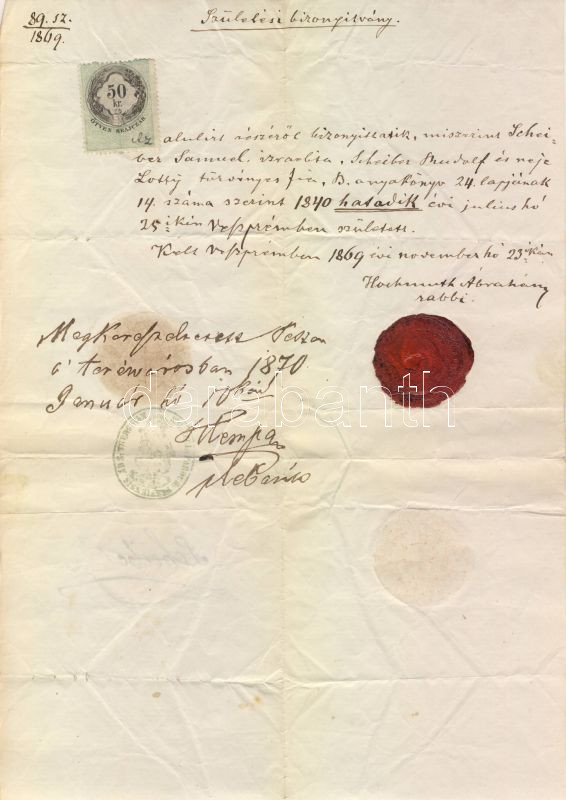 89. sz.
1869.
Születési bizonyitvány.
50
kr.
ÖTVEN KRAJCZÁR
Az alulirt részéről bizonyittatik, miszerint Schei-
ber Samuel izraelita, Scheiber Rudolf és neje
Lotty törvényes fia, B. anyakönyv 24. lapjának
14. száma szerint 1840 hatodik évi julius hó
25ikén Veszprémben született.
Kelt Veszprémben 1869 évi november hó 23ikán
Hochmuth Ábrahám
rabbi.
Pesten
a terézvárosban 1870
Januar hó
darabanth